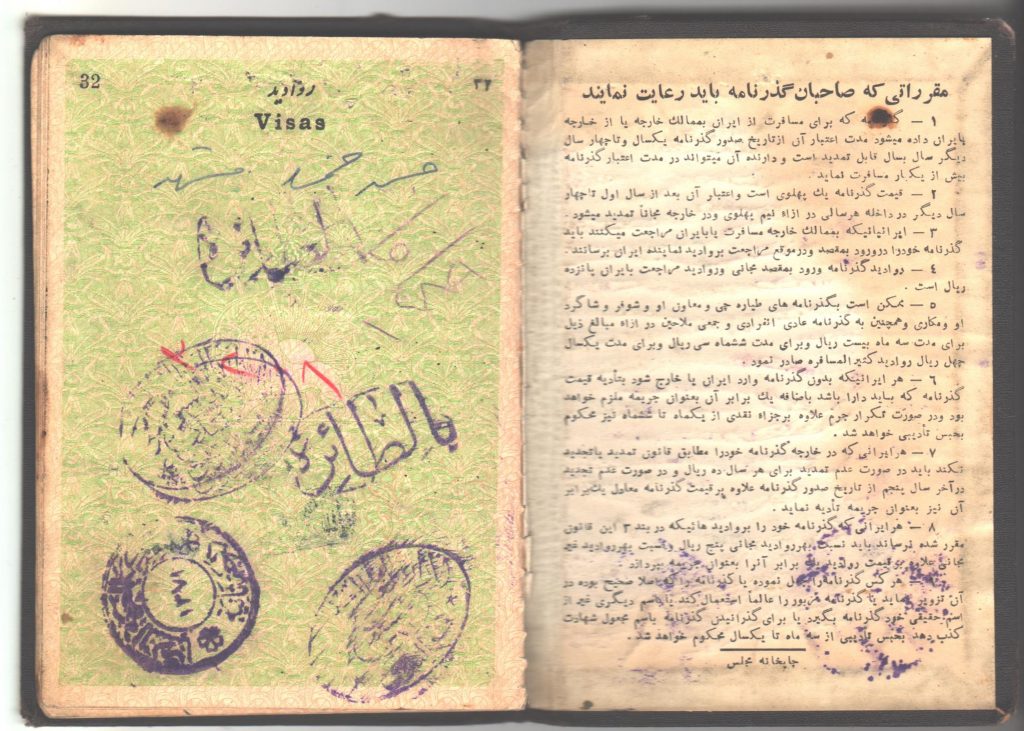 32
۳۲
روادید
Visas
بالطائرة
مقرراتی که صاحبان گذرنامه باید رعایت نمایند
۱ – که برای مسافرت از ایران بممالک خارجه یا از خارجه
بایران داده میشود مدت اعتبار آن ازتاریخ صدور گذرنامه یکسال وتاچهار سال
دیگر سال بسال قابل تمدید است و دارنده آن میتواند در مدت اعتبار گذرنامه
بیش از یکبار مسافرت نماید
۲ – قیمت گذرنامه یك پهلوی است واعتبار آن بعد از سال اول تاچهار
سال دیگر در داخله هرسالی در ازاء نیم پهلوی ودر خارجه مجاناً تمدید میشود .
۳ – ایرانیانیکه بممالك خارجه مسافرت یابایران مراجعت میکنند باید
گذرنامه خودرا درورود بمقصد ودرموقع مراجعت بروادید نماینده ایران برسانند .
٤ – روادید گذرنامه ورود بمقصد مجانی وروادید مراجعت بایران پانزده
ریال است .
٥ – ممکن است بگذرنامه های طیاره چی و معاون او و شوفر و شاگرد
او ومکاری وهمچنین به گذرنامه عادی انفرادی و جمعی ملاحین در ازاء مبالغ ذیل
برای مدت سه ماه بیست ریال وبرای مدت ششماه سی ریال وبرای مدت یکسال
چهل ریال روادید کثیرالمسافره صادر نمود .
٦ – هر ایرانیکه بدون گذرنامه وارد ایران یا خارج شود بتأدیه قیمت
گذرنامه که باید دارا باشد باضافه یك برابر آن بعنوان جریمه ملزم خواهد
بود ودر صورت تکرار جرم علاوه برجزاء نقدی از یکماه تا ششماه نیز محکوم
بحبس تأدیبی خواهد شد .
۷ – هرایرانی که در خارجه گذرنامه خودرا مطابق قانون تمدید یاتجدید
نکند باید در صورت عدم تمدید برای هر سال ده ریال و در صورت عدم تجدید
درآخر سال پنجم از تاریخ صدور گذرنامه علاوه برقیمت گذرنامه معادل یك برابر
آن نیز بعنوان جریمه تأدیه نماید .
۸ – هرایرانی که گذرنامه خود را بروادید هائیکه در بند ۳ این قانون
مقرر شده نرساند باید نسبت بهرروادید مجانی پنج ریال ونسبت بهرروادید غیر
مجانی علاوه برقیمت روادید یك برابر آنرا بعنوان جریمه بپردازد
هر کس گذرنامه را جعل نموده یا گذرنامه را که اصلا صحیح بوده در
آن تزویر نماید یا گذرنامه مزبور را عالماً استعمال کند یا باسم دیگری غیر از
اسم حقیقی خود گذرنامه بگیرد یا برای گذرانیدن گذرنامه باسم مجعول شهادت
کذب دهد بحبس تأدیبی از سه ماه تا یکسال محکوم خواهد شد .
چاپخانه مجلس